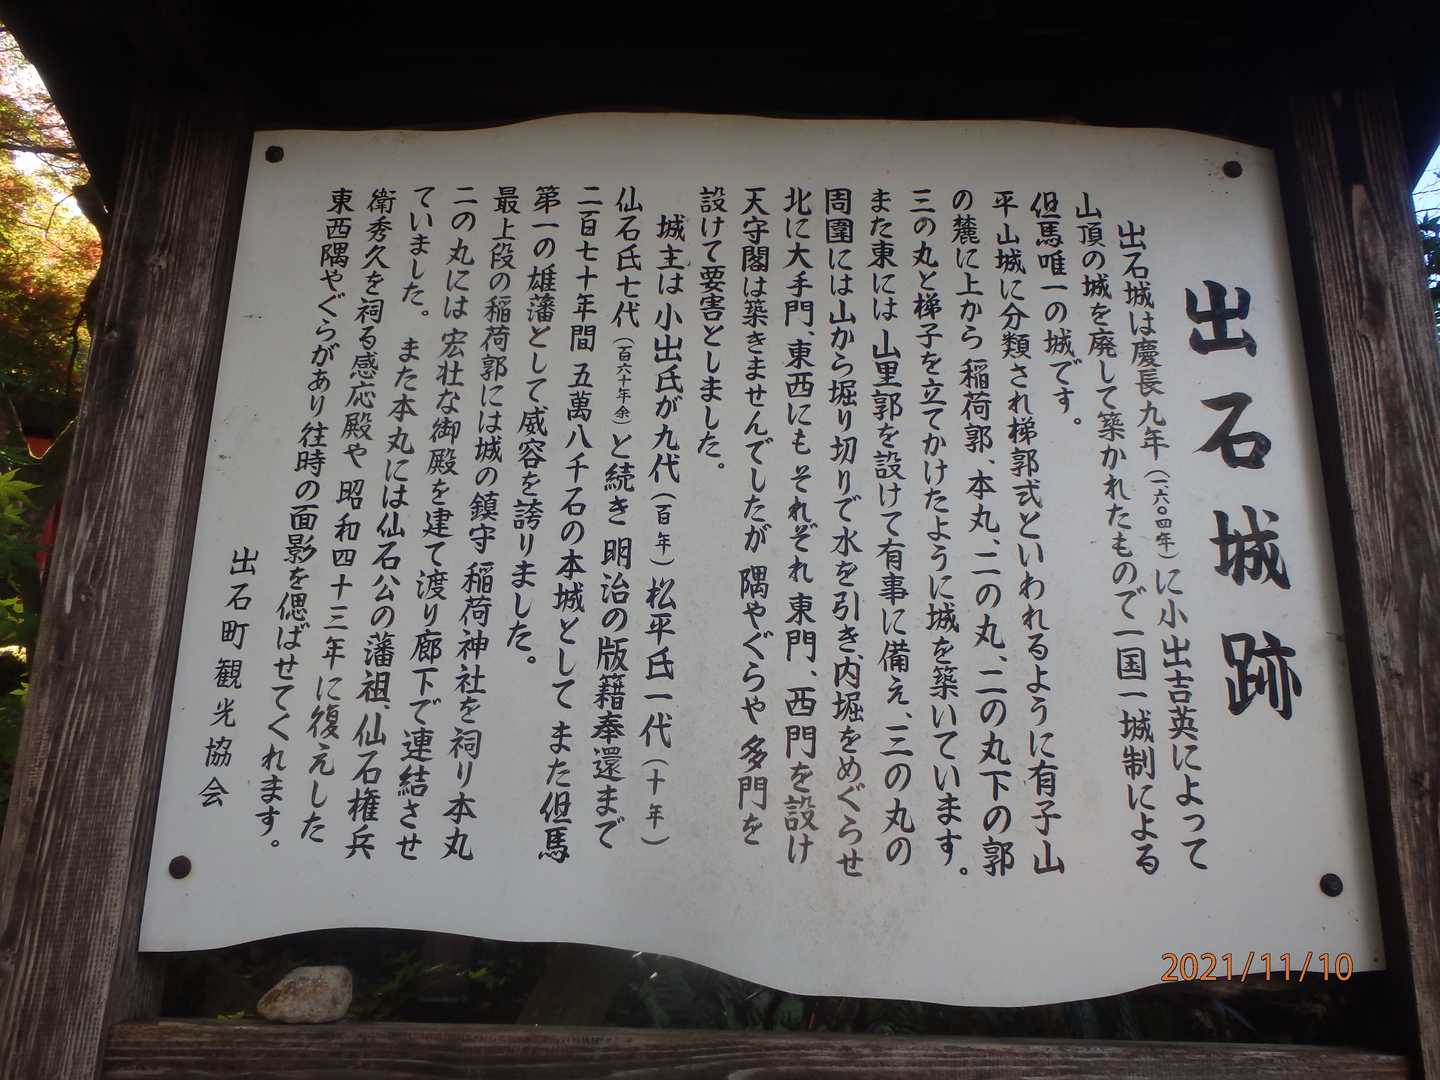 出石城跡
出石城は慶長九年（一六〇四年）に小出吉英によって
山頂の城を廃して築かれたもので一国一城制による
但馬唯一の城です。
平山城に分類され梯郭式といわれるように有子山
の麓に上から稲荷郭、本丸、二の丸、二の丸下の郭
三の丸と梯子を立てかけたように城を築いています。
また東には山里郭を設けて有事に備え、三の丸の
周囲には山から堀り切りで水を引き、内堀をめぐらせ
北に大手門、東西にもそれぞれ東門、西門を設け
天守閣は築きませんでしたが隅やぐらや多門を
設けて要害としました。
城主は小出氏が九代（百年）松平氏一代（十年）
仙石氏七代（百六十年余）と続き明治の版籍奉還まで
二百七十年間五萬八千石の本城としてまた但馬
第一の雄藩として威容を誇りました。
最上段の稲荷郭には城の鎮守稲荷神社を祠り本丸
二の丸には宏壮な御殿を建て渡り廊下で連結させ
ていました。また本丸には仙石公の藩祖、仙石権兵
衛秀久を祠る感応殿や昭和四十三年に復元した
東西隅やぐらがあり往時の面影を偲ばせてくれます。
出石町観光協会
2021/11/10